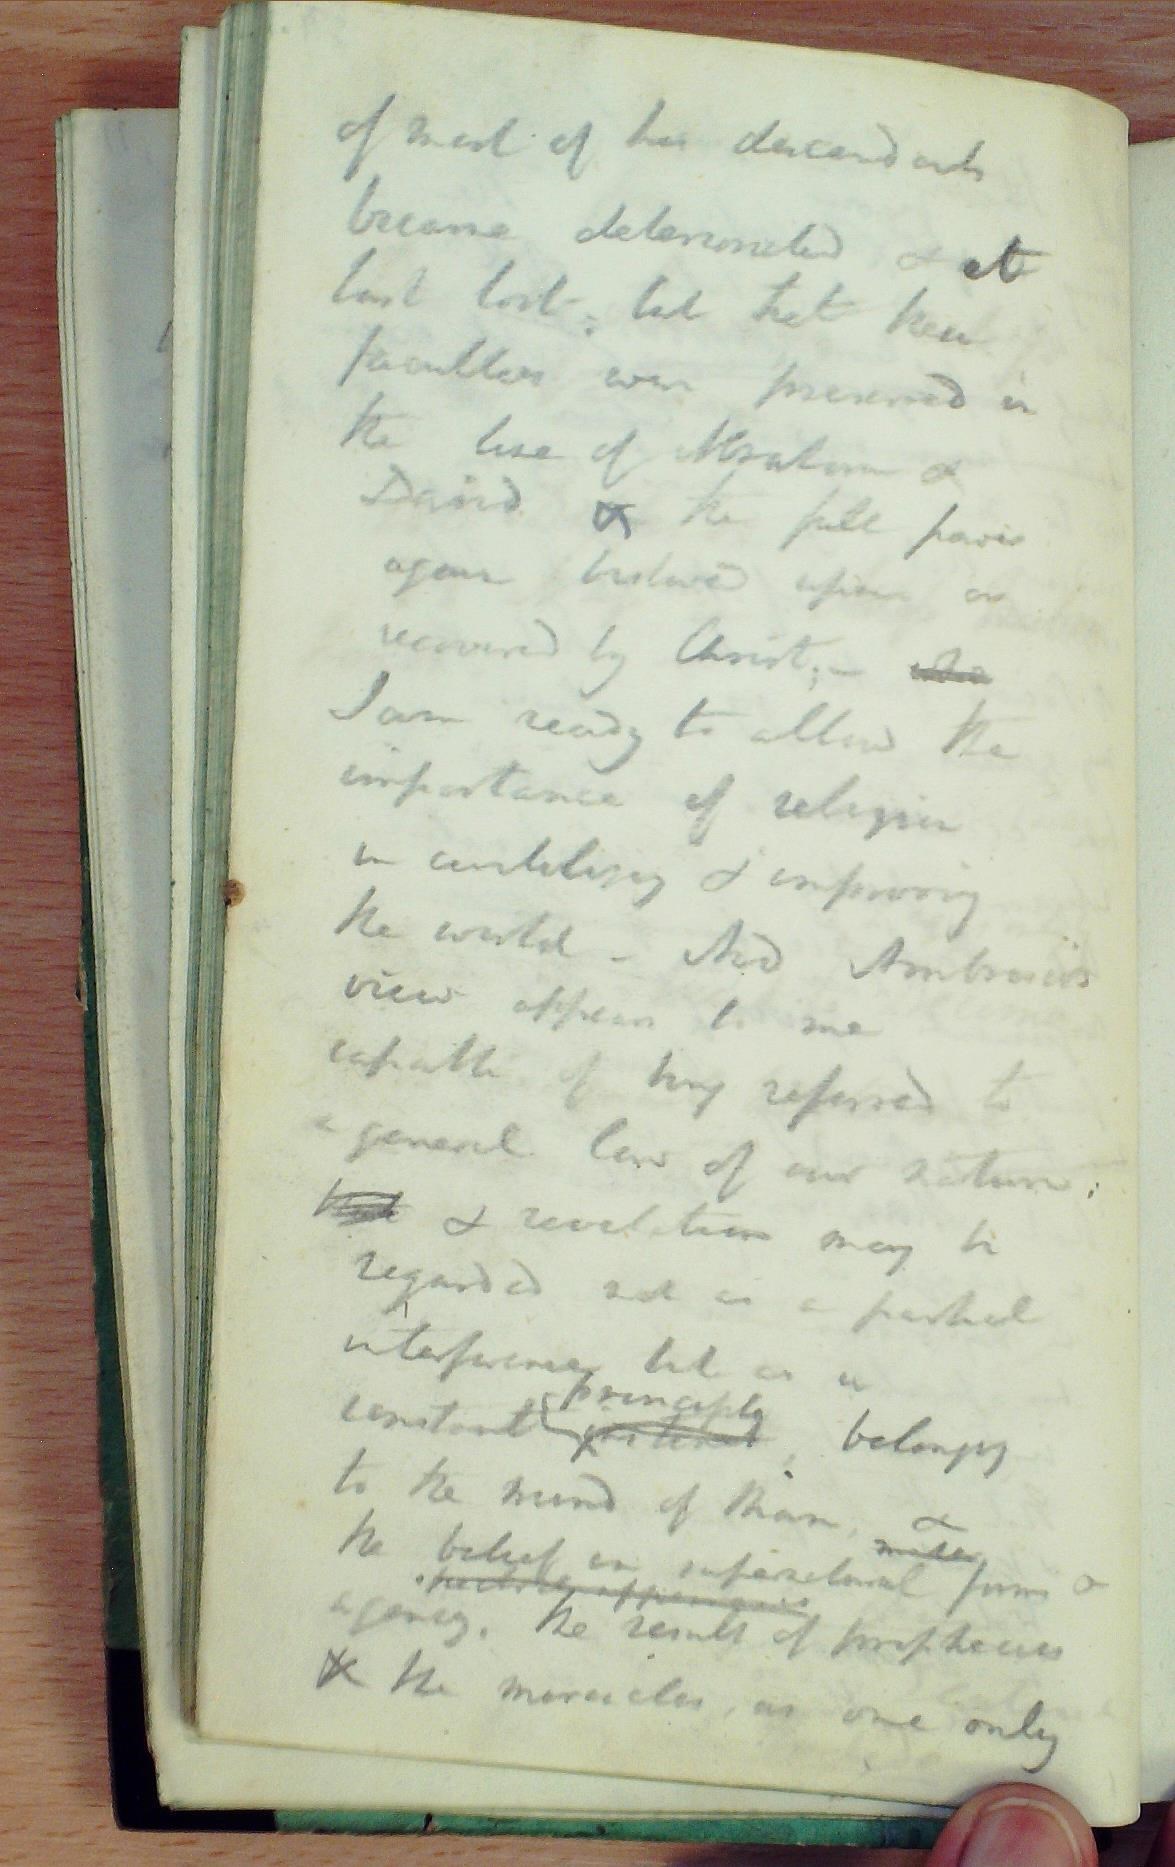 of most of his descendants
became deteriorated & at
last lost; but that these
faculties were preserved in
the line of Abraham &
David & the full power
again bestowed upon or
recovered by Christ; –
I am ready to allow the
importance of religion
in civilizing & improving
the world – And Ambrosio's
view appears to me
capable of being referred to
a general law of our nature;
& revelation may be
regarded not as a partial
interference but as a
constant principle
belonging
to the mind of Man, &
the belief in supernatural forms &
agency, the results of prophecies
& the miracles, as one only